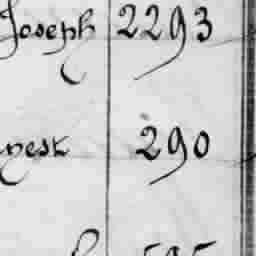 Joseph 2293
nest 290